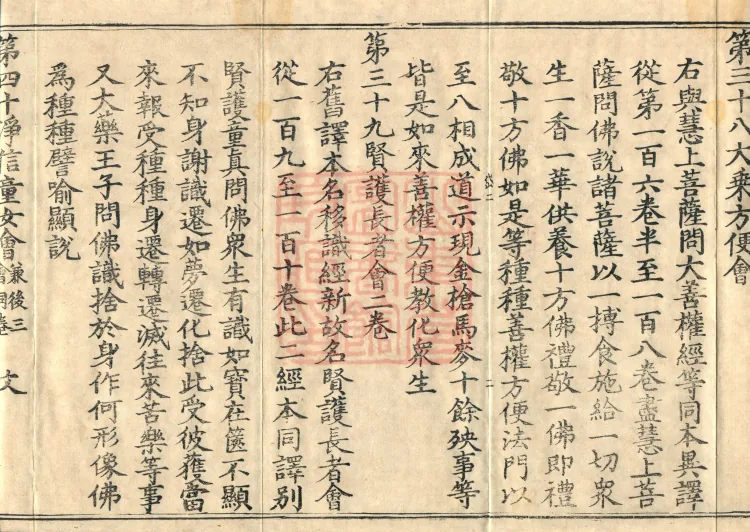 第三十八大乘方便會
右與慧上菩薩問大善權經等同本異譯
從第一百六卷半至一百八卷盡慧上菩
薩問佛說諸菩薩以一摶食施給一切衆
生一香一華供養十方佛禮敬一佛即禮
敬十方佛如是等種種善權方便法門以
至八相成道示現金槍馬麥十餘殃事等
皆是如來善權方便教化衆生
第三十九賢護長者會二卷
右舊譯本名移識經新改名賢護長者會
從一百九至一百十卷此二經本同譯別
賢護童真問佛衆生有識如寶在篋不顯
不知身謝識遷如夢遷化捨此受彼獲當
來報受種種身遷轉遷滅往來苦樂等事
又大藥王子問佛識捨於身作何形像佛
爲種種譬喻顯說
第四十淨信童女會兼後三會同卷